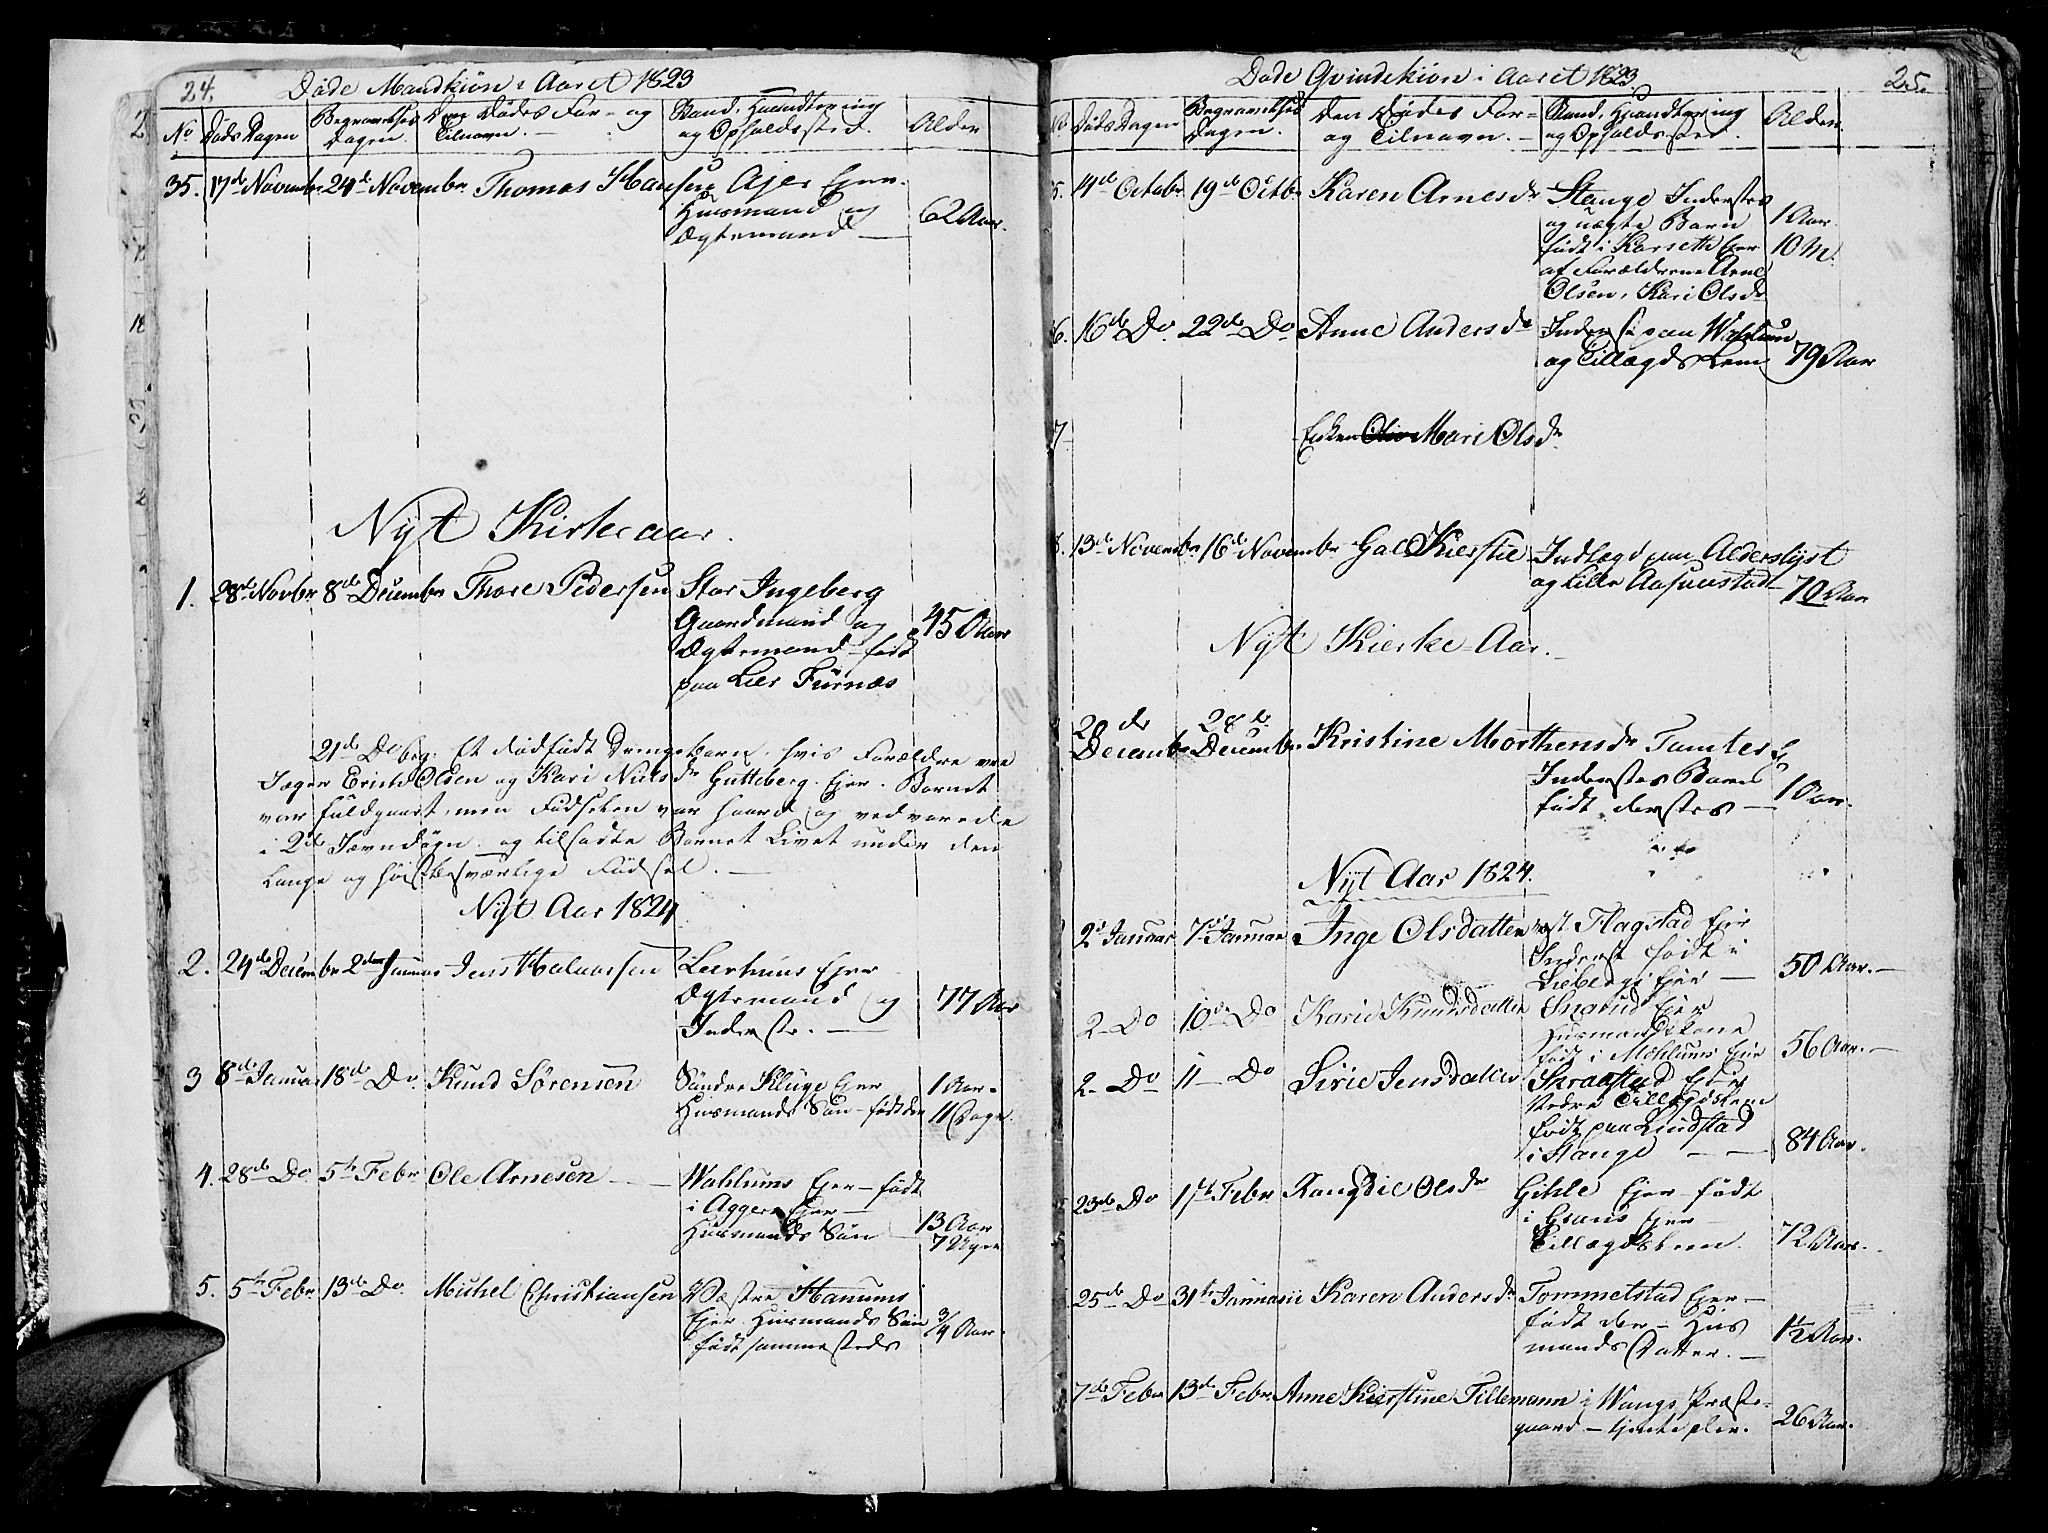 24.
Døde Mandkiøn i Aaret 1823
No Døds Dagen Begravelses Dagen. Den Dødes For- og Tilnavn. Stand, Haandtering og Opholdssted. Alder
35. 17de Novembr 24de Novembr Thomas Hansen Ajer Ejer.
Huusmand og 62 Aar.
Ægtemand
Nyt Kirkeaar.
1. 28de Novbr 8de Decembr Thore Pedersen Stor Ingeberg
Gaardmand og 45 Aar
Ægtemand født
paa Lier Furnæs
21de Do beg. Et dødfødt Drengebarn, hvis Forældre vare
Jæger Erich Olsen og Kari Nielsdr Gutteberg Ejer. Barnet
var fuldgaaet, men Fødselen var haard og vedvarede
i 2de Jævndøgn og tilsadte Barnet Livet under den
Lange og høistbesværlige Fødsel.
Nyt Aar 1824
2. 24de Decembr 2den Januar Jens Halvorsen Leerhuus Ejer
Ægtemand og 77 Aar
Inderste.
3 8de Januar 18de Do. Knud Sørensen Søndre Kluge Ejer 1 Aar.
Huusmands Søn født der 11 Dage.
4. 28de Do 5te Febr Ole Arnesen Wahlums Ejer født
i Aggers Ejer
Huusmands Søn 13 Aar
7 Uger
5. 5te Febr 13de Do. Michel Christiansen Væstre Hanums
Ejer. Huusmands Søn 3/4 Aar.
født sammesteds
25.
Døde Qvindekiøn i Aaret 1823
No Døds Dagen Begravelses Dagen. Den Dødes For- og Tilnavn. Stand, Haandtering og Opholdssted. Alder.
5. 14de Octobr 19de Octbr Karen Arnesdr Stange Inderstes
og uægte Barn 1 Aar.
født i Karseth Ejer 10 M.
af Forældrene Arne
Olsen, Kari Olsdr
6. 16de Do. 22de Do Anne Andersdr Inderst paa Wahlum
og Tillægds Lem 79 Aar
7 Enken Mari Olsdr
8. 13de Novembr 16de Novembr Gal Kierstie Indlagd paa Alderslyst
og Lille 70 Aar
Nyt Kierke-Aar.
20de Decembr 28de Decembr Kristine Morthensdr Tomter Ej
Inderstes Barn
født dersteds 1 Aar.
Nyt Aar 1824.
2de Januar 7de Januar Inge Olsdatter vest. Flagstad Ejer
Inderst født i
Liebergs Ejer 50 Aar.
2 Do 10de Do Karie Knudsdatter Snarud Ejer
Huusmandskone
født i Mæhlums Ejer 56 Aar.
2 Do 11 Do Sirie Jensdatter Skraastad Ejer
Nedre Tillægdslem
født paa Lindstad
i Stange 84 Aar.
23de Do 1ste Febr Rangdie Olsdr Gihle Ejer født
i Grans Ejer
Tillægdslem. 72 Aar.
25de Do 31te Januarii Karen Andersdr Tommelstad Ejer
født der Huus
mands Datter. 1½ Aar.
7de Febr 13de Febr Anne Kierstine Tillemann i Wangs Præste-
gaard tjente der. 26 Aar.